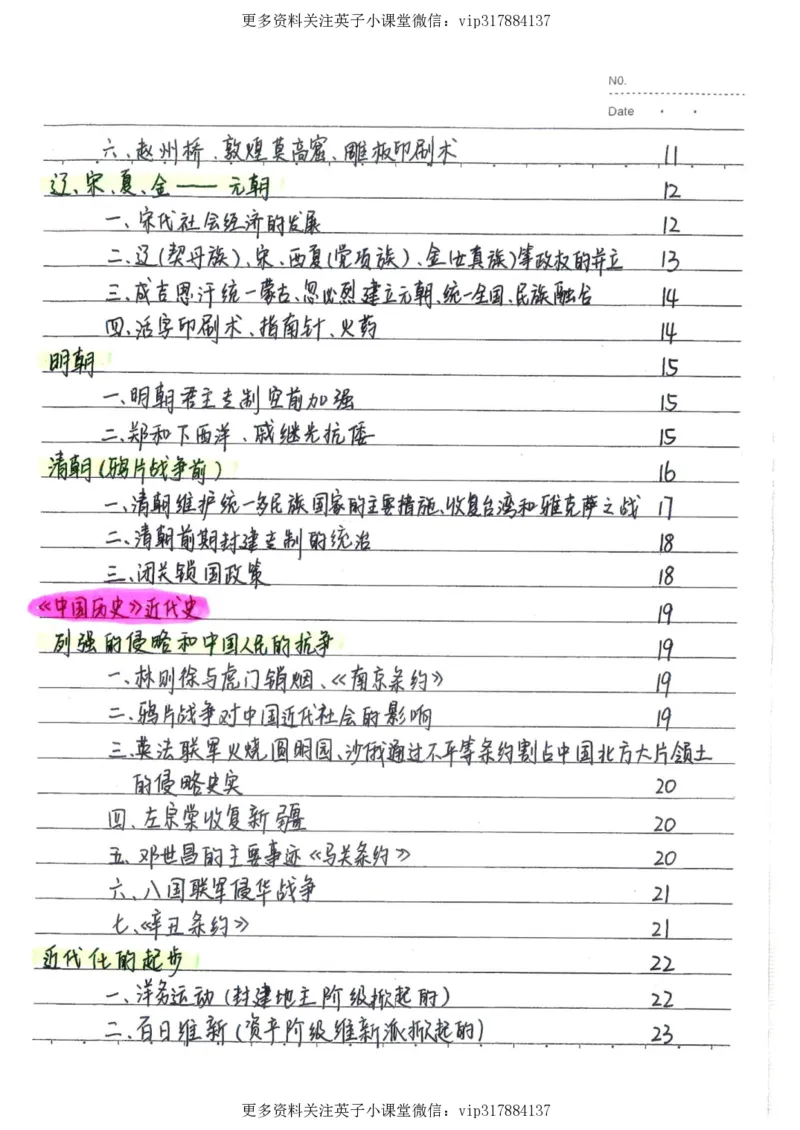 更多资料关注英子小课堂微信：vip317884137
NO.
Date
六、赵州桥、敦煌莫高窟、雕板印刷术 11
辽、宋、夏、金——元朝 12
一、宋代社会经济的发展 12
二、辽(契丹族)、宋、西夏(党项族)、金(女真族)等政权的并立 13
三、成吉思汗统一蒙古、忽必烈建立元朝、统一全国、民族融合 14
四、活字印刷术、指南针、火药 14
明朝 15
一、明朝君主专制空前加强 15
二、郑和下西洋、戚继光抗倭 15
清朝(鸦片战争前) 16
一、清朝维护统一多民族国家的主要措施、收复台湾和雅克萨之战 17
二、清朝前期封建专制的统治 18
三、闭关锁国政策 18
《中国历史》近代史 19
列强的侵略和中国人民的抗争 19
一、林则徐与虎门销烟、《南京条约》 19
二、鸦片战争对中国近代社会的影响 19
三、英法联军火烧圆明园、沙俄通过不平等条约割占中国北方大片领土
的侵略史实 20
四、左宗棠收复新疆 20
五、邓世昌的主要事迹《马关条约》 20
六、八国联军侵华战争 21
七、《辛丑条约》 21
近代化的起步 22
一、洋务运动(封建地主阶级掀起的) 22
二、百日维新(资产阶级维新派掀起的) 23
更多资料关注英子小课堂微信：vip317884137